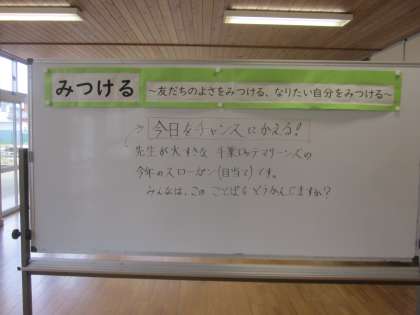 みつける
～友だちのよさをみつける、なりたい自分をみつける～
今日をチャンスにかえる!
先生が大すきな 千葉ロッテマリーンズの
今年のスローガン(目当て)です。
みんなは、この ことばを どうかんじますか?